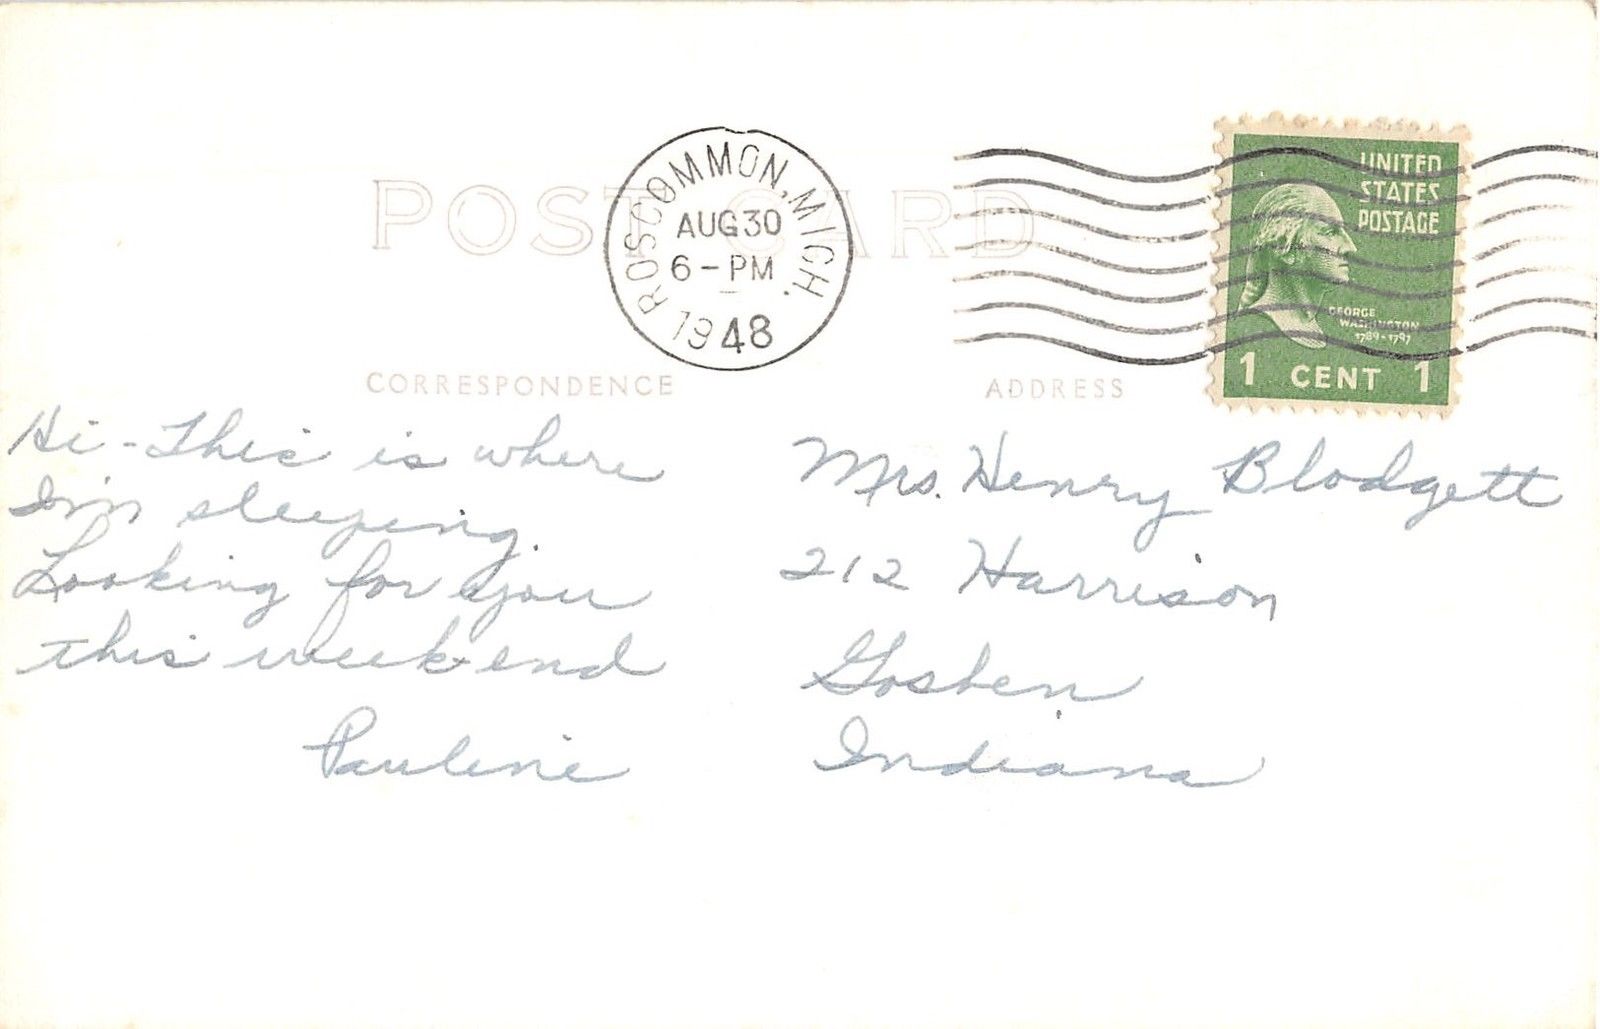 POST CARD
ROSCOMMON, MICH.
AUG 30
6-PM
1948
UNITED
STATES
POSTAGE
GEORGE
WASHINGTON
1789-1797
1 CENT 1
CORRESPONDENCE
ADDRESS
Hi - This is where
I'm sleeping.
Looking for you
this week-end
Pauline
Mrs. Henry Blodgett
212 Harrison
Goshen
Indiana